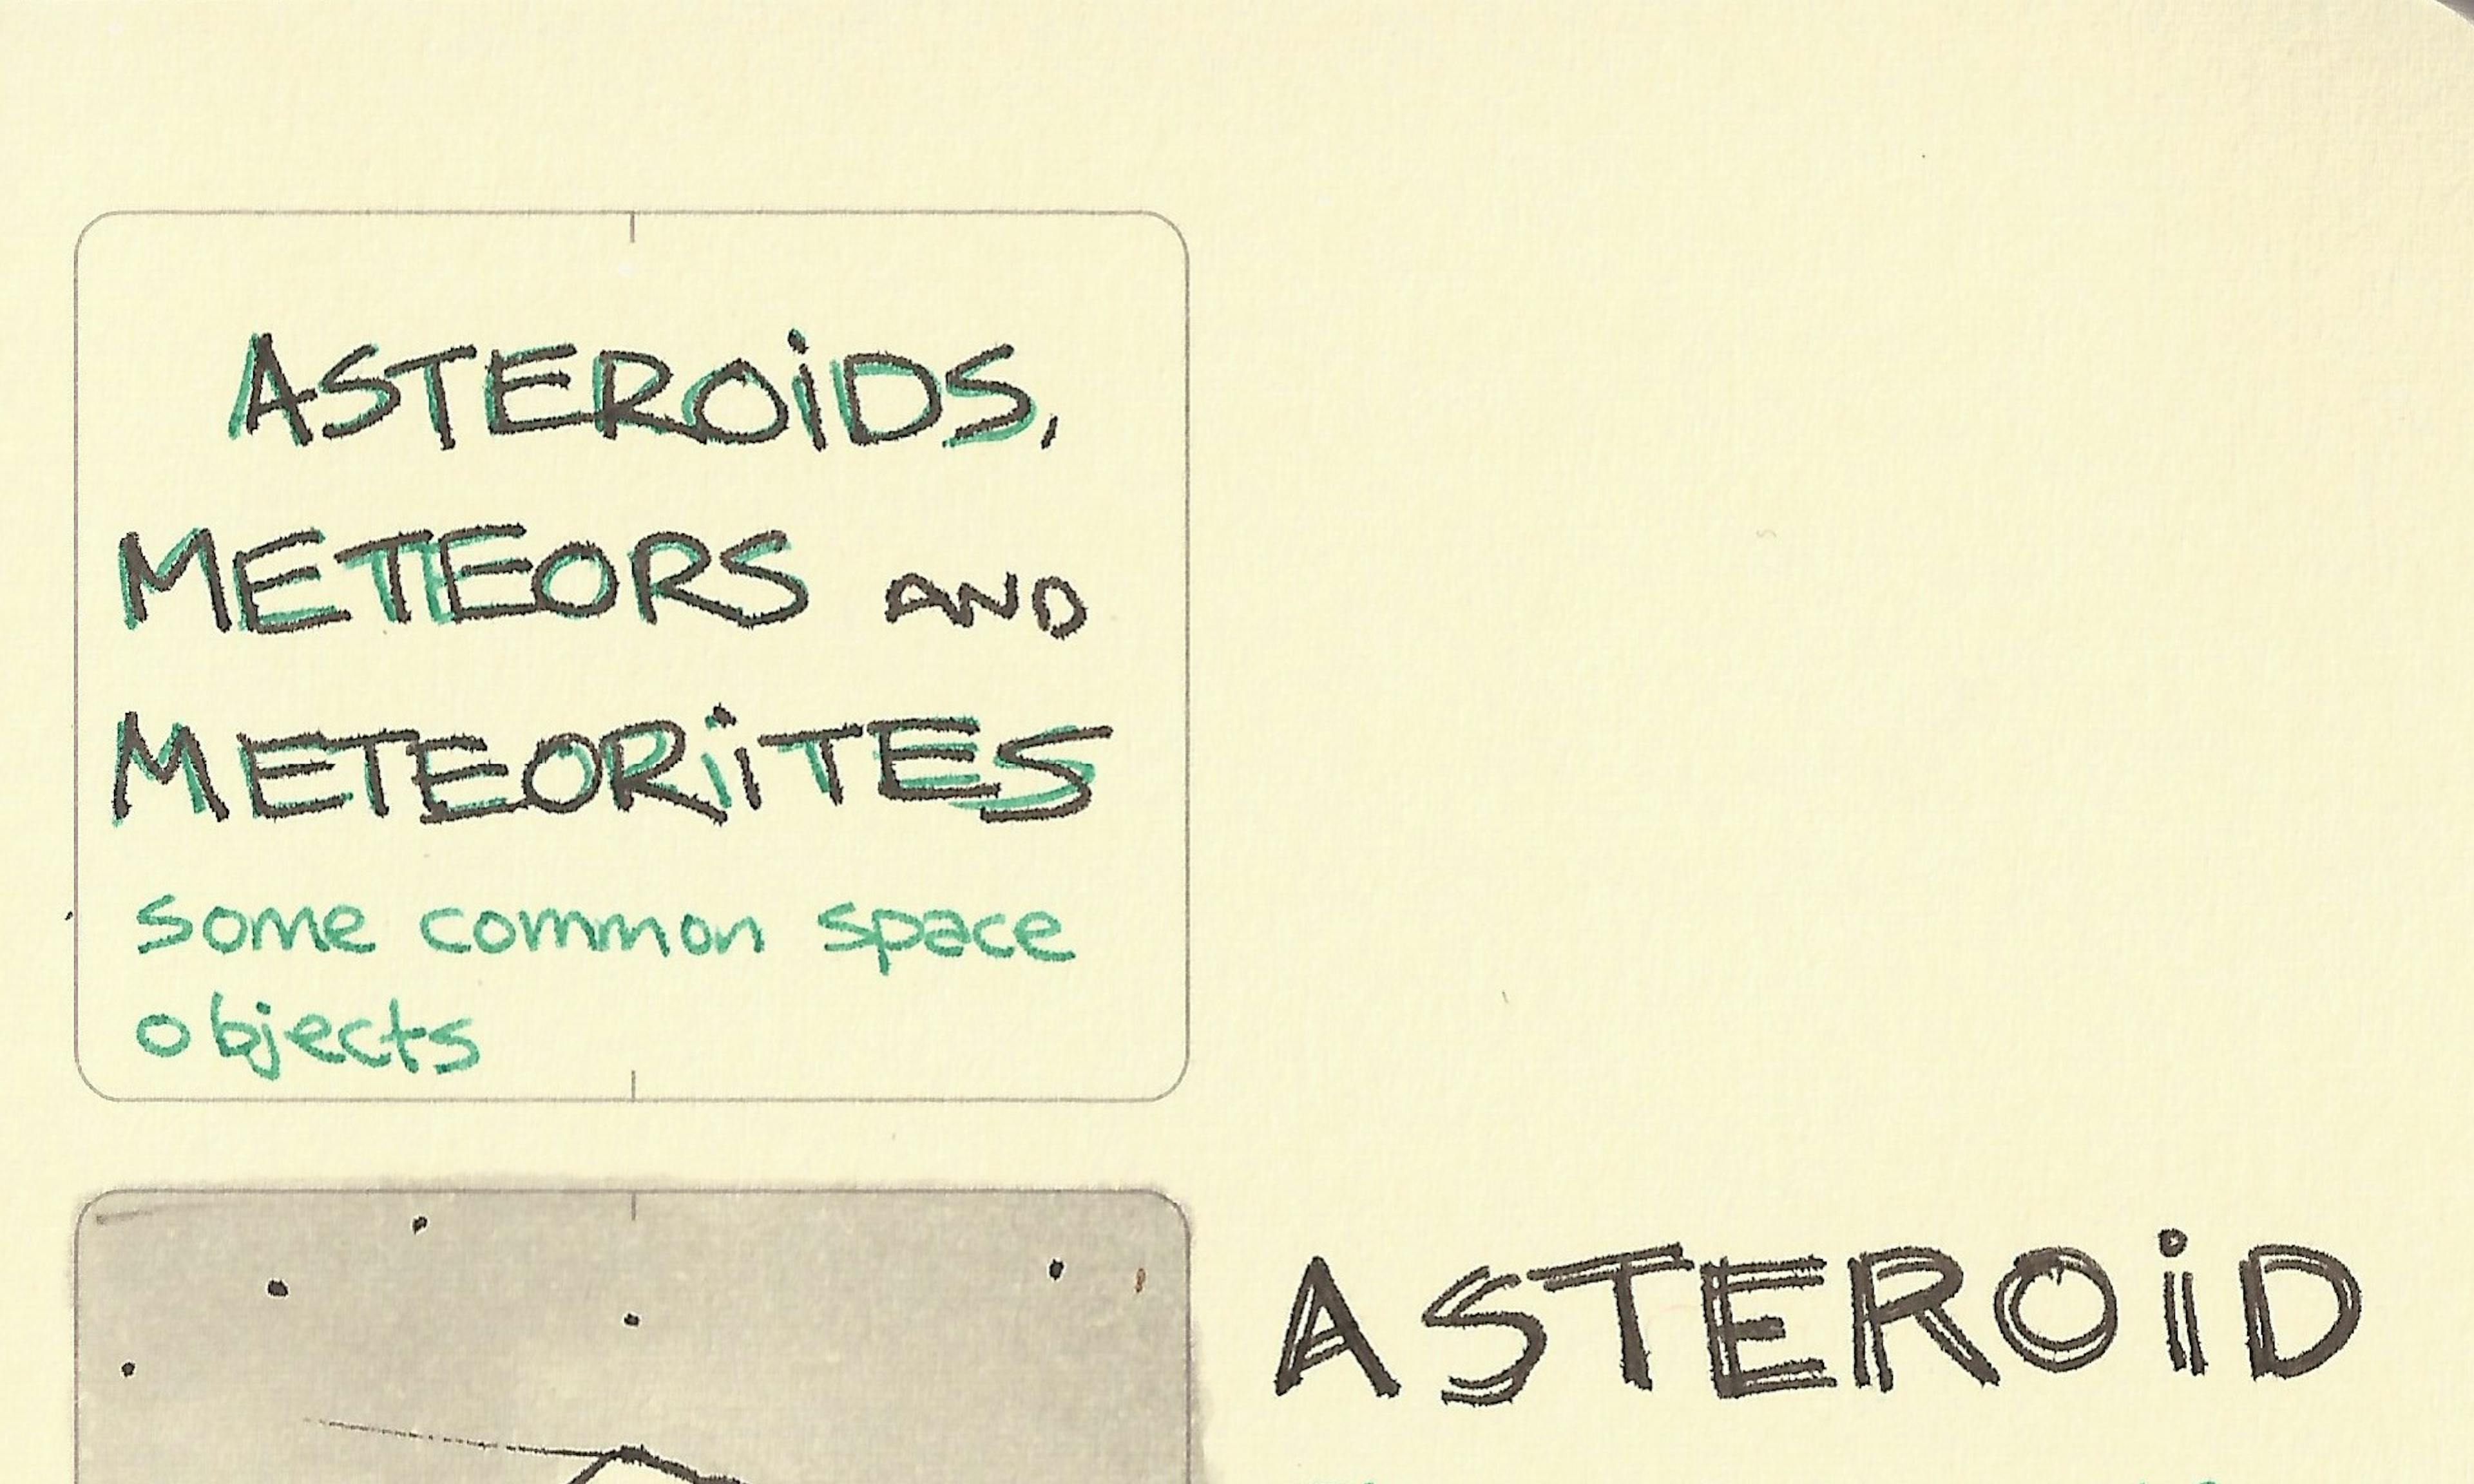 ASTEROiDS,
METEORS AND
METEORiTES
some common space
objects
ASTEROiD